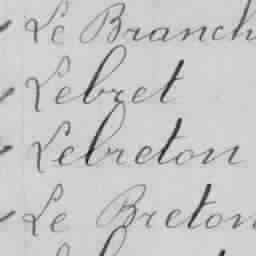 Le Branch
Lebret
Lebreton
Le Breton